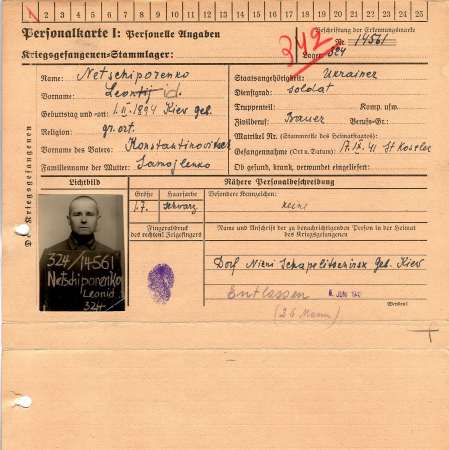 1 2 3 4 5 6 7 8 9 10 11 12 13 14 15 16 17 18 19 20 21 22 23 24 25
Personalkarte I: Personelle Angaben
Kriegsgefangenen-Stammlager:
342
Beschriftung der Erkennungsmarke
Nr. 14561
Lager: 324
Des Kriegsgefangenen
Name: Netschiporenko
Vorname: Leontij id.
Geburtstag und -ort: 1.II.1894 Kiew geb.
Religion: gr. ort.
Vorname des Vaters: Konstantinowitsch
Familienname der Mutter: Samojlenko
Staatsangehörigkeit: Ukrainer
Dienstgrad: Soldat
Truppenteil: Komp. usw.
Zivilberuf: Bauer Berufs-Gr.:
Matrikel Nr. (Stammrolle des Heimatstaates):
Gefangennahme (Ort u. Datum): 17.IX.41
Ob gesund, krank, verwundet eingeliefert:
Lichtbild
324/14561
Netschiporenko
Leonid
324
Nähere Personalbeschreibung
Größe Haarfarbe Besondere Kennzeichen:
1.7. schwarz keine
Fingerabdruck
des rechten Zeigefingers
Name und Anschrift der zu benachrichtigenden Person in der Heimat
des Kriegsgefangenen
Dorf Geb. Kiew
Entlassen 6. JUNI 1942
(26 Mann)
Wenden!